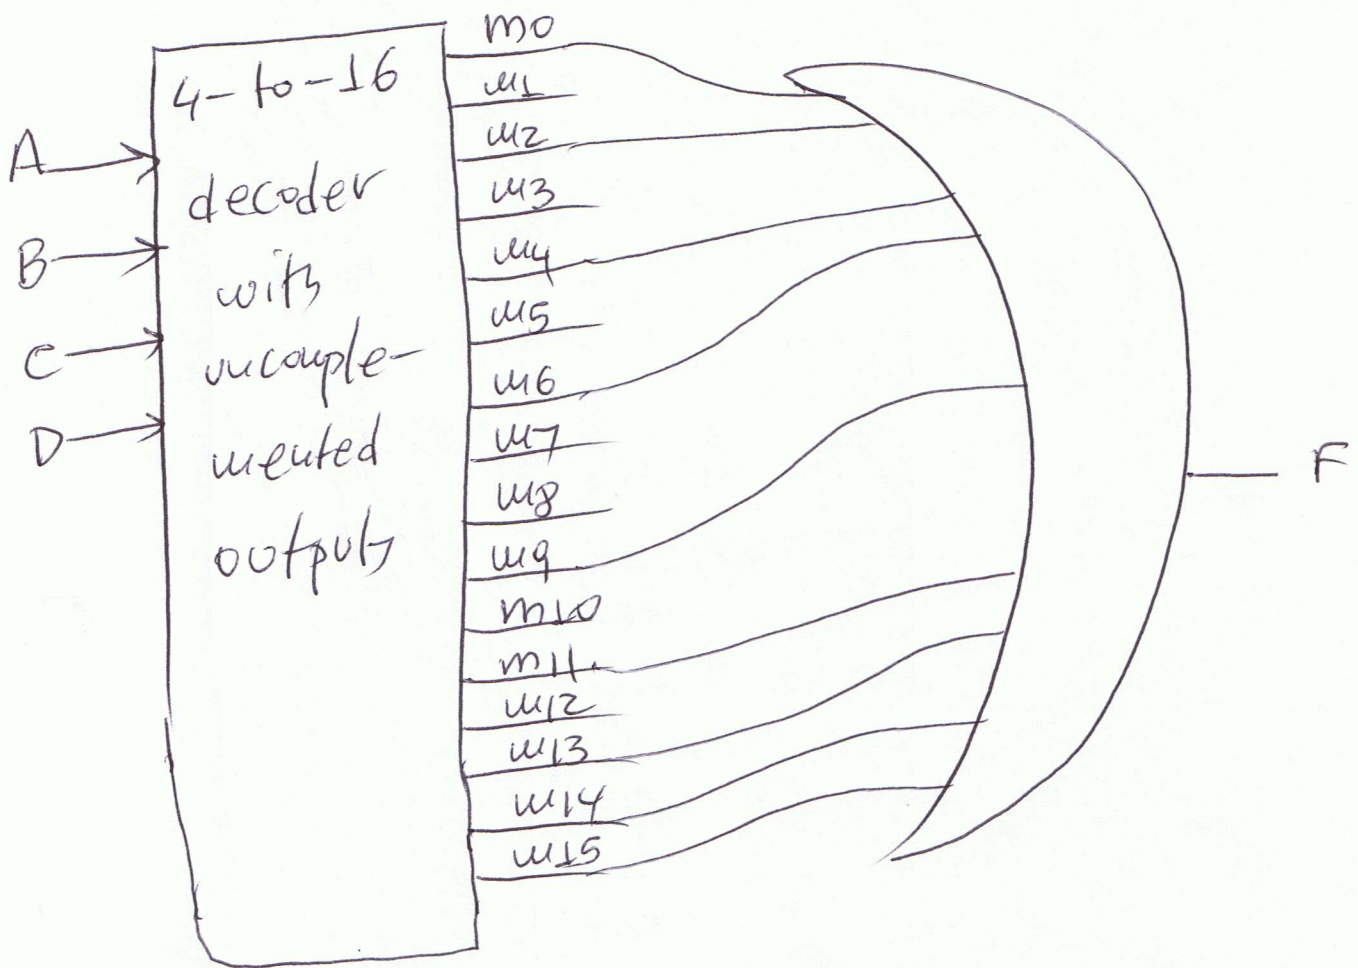 4-to-16
decoder
with
uncomple-
mented
outputs
A
B
C
D
m0
m1
m2
m3
m4
m5
m6
m7
m8
m9
m10
m11
m12
m13
m14
m15
F